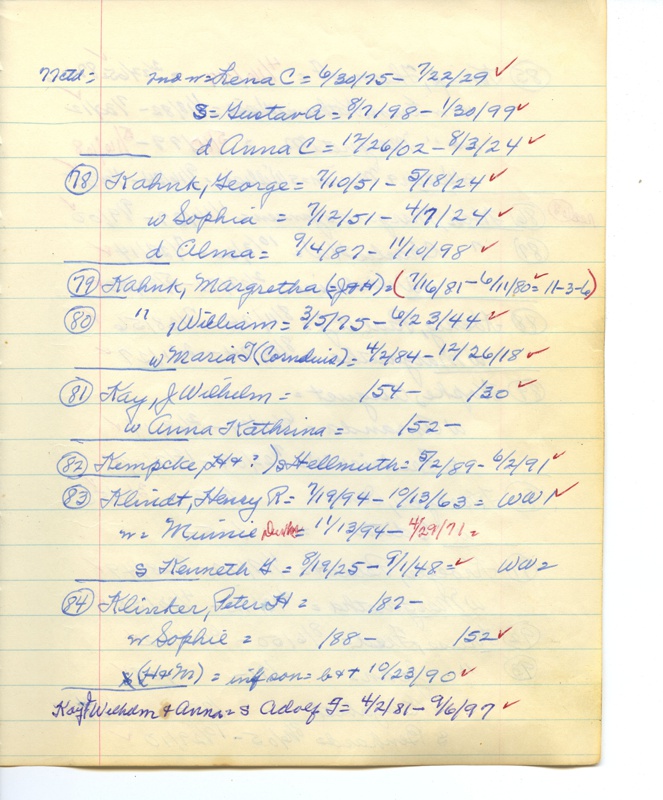 Mtd = mo w = Lena C = 6/30/75 - 7/22/29 ✓
S = Gustav A = 8/7/98 - 1/30/99 ✓
d Anna C = 12/26/02 - 8/3/24 ✓
78 Kahnk, George = 7/10/51 - 5/18/24 ✓
w Sophia = 7/12/51 - 4/7/24 ✓
d. Alma = 9/4/87 - 11/10/98 ✓
79 Kahnk, Margretha (= J + H) = (7/16/81 - 6/11/80 ✓ = 11-3-6)
80 " , William = 3/5/75 - 6/23/44 ✓
w Maria T (Corndius) = 4/2/84 - 12/26/18 ✓
81 Kay, J Wilhelm = /54 - /30 ✓
w Anna Kathrina = /52 -
82 Kempcke, H + ? ) s Hellmuth = 5/2/89 - 6/2/91 ✓
83 Klindt, Henry R = 7/19/94 - 10/13/63 = WW 1 ✓
w = Minnie = 11/13/94 - 4/29/71 =
s Kenneth G = 8/19/25 - 9/1/48 = ✓ WW 2
84 Klinker, Peter H = /87 -
w Sophie = /88 - /52 ✓
(H + M) = inf son = b + t 10/23/90 ✓
Kay, J Wilhelm + Anna = s Adolf F = 4/2/81 - 9/6/97 ✓